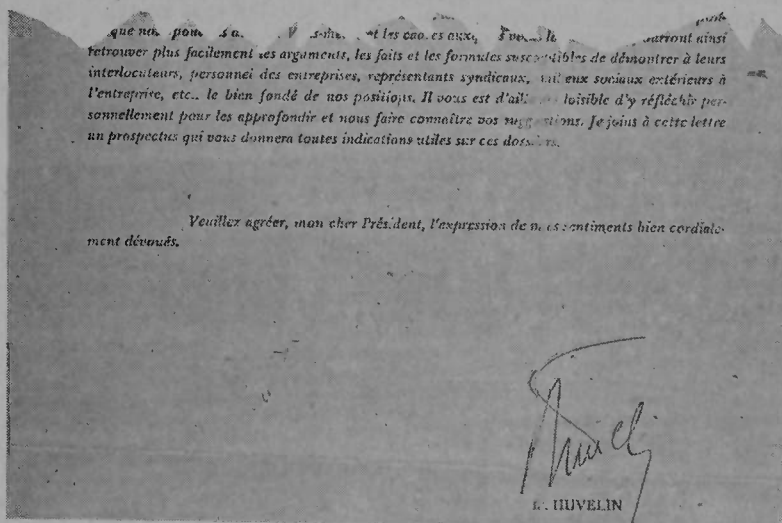 que les
retrouver plus facilement les arguments, les faits et les formules susceptibles de démontrer à leurs
interlocuteurs, personnel des entreprises, représentants syndicaux, sociaux extérieurs à
l'entreprise, etc.. le bien fondé de nos positions. Il vous est loisible d'y réfléchir per-
sonnellement pour les approfondir et nous faire connaître vos suggestions. Je joins à cette lettre
un prospectus qui vous donnera toutes indications utiles sur ces dossiers.
Veuillez agréer, mon cher Président, l'expression de mes sentiments bien cordiale-
ment dévoués.
HUVELIN